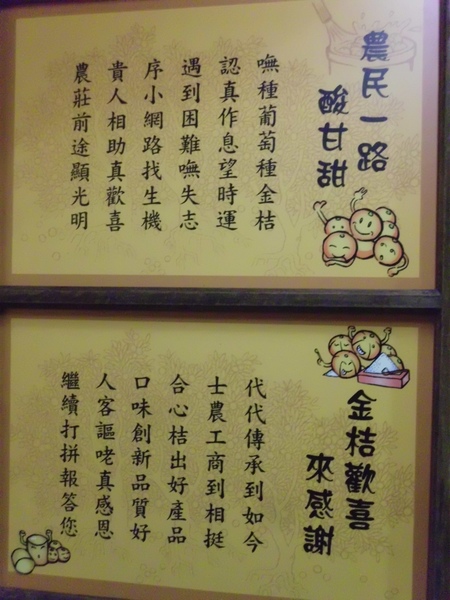 農民一路
酸甘甜
嘸種葡萄種金桔
認真作息望時運
遇到困難嘸失志
序小網路找生機
貴人相助真歡喜
農莊前途顯光明
金桔歡喜
來感謝
代代傳承到如今
士農工商到相挺
合心桔出好產品
口味創新品質好
人客謳咾真感恩
繼續打拼報答您